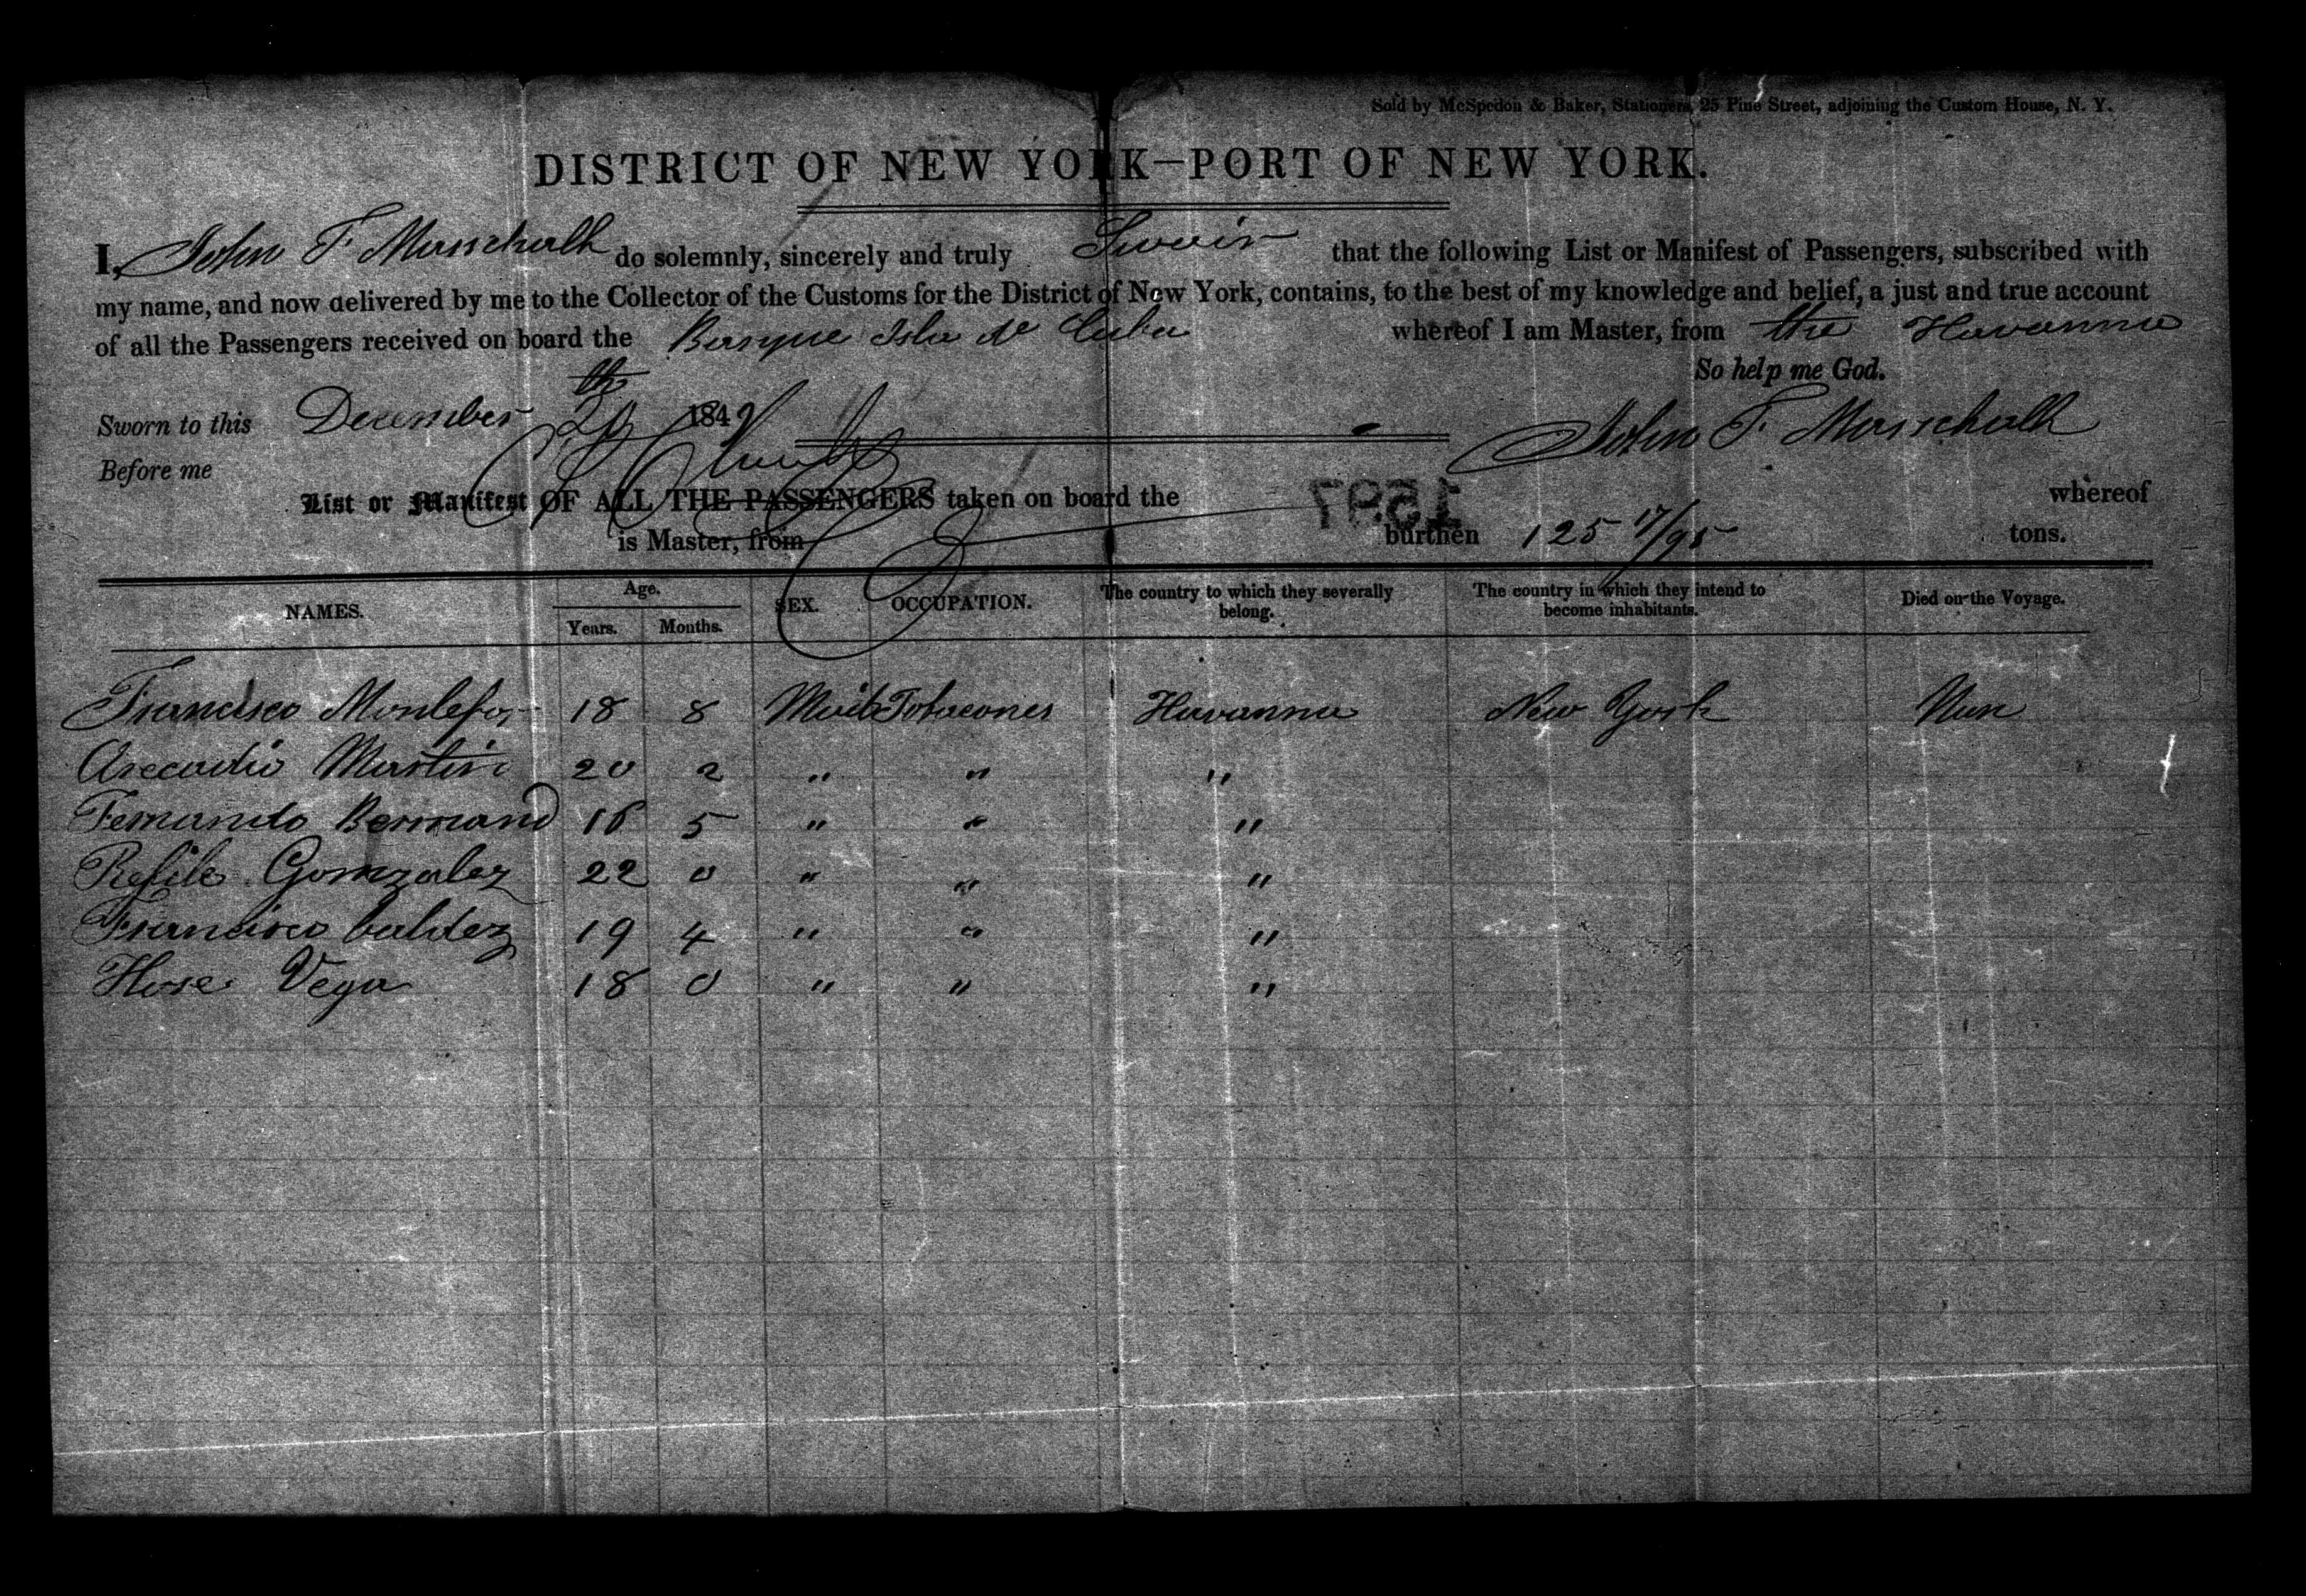 Sold by McSpedon & Baker, Stationers, 25 Pine Street, adjoining the Custom House, N. Y.
DISTRICT OF NEW YORK—PORT OF NEW YORK.
I, John F. Marschalk do solemnly, sincerely and truly Swair that the following List or Manifest of Passengers, subscribed with
my name, and now delivered by me to the Collector of the Customs for the District of New York, contains, to the best of my knowledge and belief, a just and true account
of all the Passengers received on board the Barque Isla de Cuba whereof I am Master, from the Havanna
So help me God.
Sworn to this December th 1849
John F. Marschalk
Before me
List or Manifest OF ALL THE PASSENGERS taken on board the whereof
1597
is Master, from burthen 125 17/95 tons.
NAMES. Age. Years. Months. SEX. OCCUPATION. The country to which they severally belong. The country in which they intend to become inhabitants. Died on the Voyage.
Francisco 18 8 Tobacones Havanna New York Nun
Areadio Martin 20 2 " " "
Fernando 16 5 " " "
Gomzalez 22 0 " " "
Francisco Valdez 19 4 " " "
Hose Vega 18 0 " " "